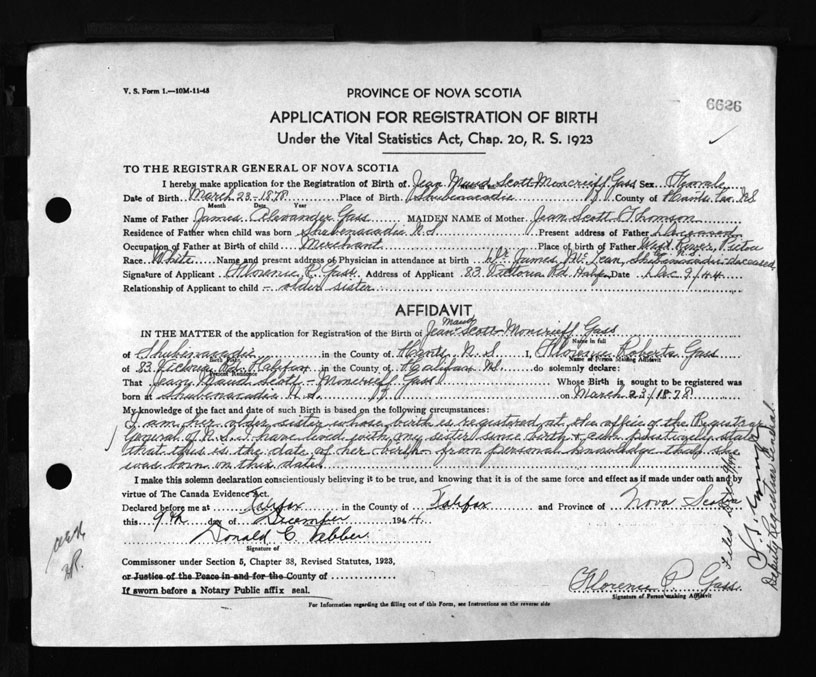 V. S. Form 1.—10M-11-43
PROVINCE OF NOVA SCOTIA
6626
APPLICATION FOR REGISTRATION OF BIRTH
Under the Vital Statistics Act, Chap. 20, R. S. 1923
TO THE REGISTRAR GENERAL OF NOVA SCOTIA
I hereby make application for the Registration of Birth of Jean Maud Scott-Moncrieff Gass Sex Female
Date of Birth March 23-1878 Place of Birth Shubenacadie County of Hants Co. N.S
Month Date Year
Name of Father James Alexander Gass MAIDEN NAME of Mother Jean Scott Thomson
Residence of Father when child was born Shubenacadie N.S Present address of Father Deceased
Occupation of Father at Birth of child Merchant Place of Birth of Father West River, Pictou
Race White Name and present address of Physician in attendance at birth Dr. James McLean, Shubenacadie-deceased
Signature of Applicant Florence R. Gass Address of Applicant 83 Victoria Rd Halifax Date Dec 9/44
Relationship of Applicant to child - older sister
AFFIDAVIT
IN THE MATTER of the application for Registration of the Birth of Jean Maud Scott-Moncrieff Gass
Name in full
of Shubenacadie in the County of Hants N.S I, Florence Roberta Gass
Birth Place Name of Person Making Affidavit
of 83 Victoria Rd. Halifax in the County of Halifax N.S. do solemnly declare:
Present Residence
That Jean Maud Scott-Moncrieff Gass Whose Birth is sought to be registered was
born at Shubenacadie N.S. on March 23/1878
My knowledge of the fact and date of such Birth is based on the following circumstances:
I am her older sister whose birth is registered at the office of the Registrar
General of N.S. I have lived with my sister since birth & can positively state
that this is the date of her birth from personal knowledge that she
was born on this date
I make this solemn declaration conscientiously believing it to be true, and knowing that it is of the same force and effect as if made under oath and by
virtue of The Canada Evidence Act.
Declared before me at Halifax in the County of Halifax and Province of Nova Scotia
this 9th day of December 1944
Donald C.
Signature of
Commissioner under Section 5, Chapter 38, Revised Statutes, 1923,
or Justice of the Peace in and for the County of
If sworn before a Notary Public affix seal.
Florence R. Gass
Signature of Person making Affidavit
For Information regarding the filling out of this Form, see Instructions on the reverse side
Filed
Deputy Registrar General